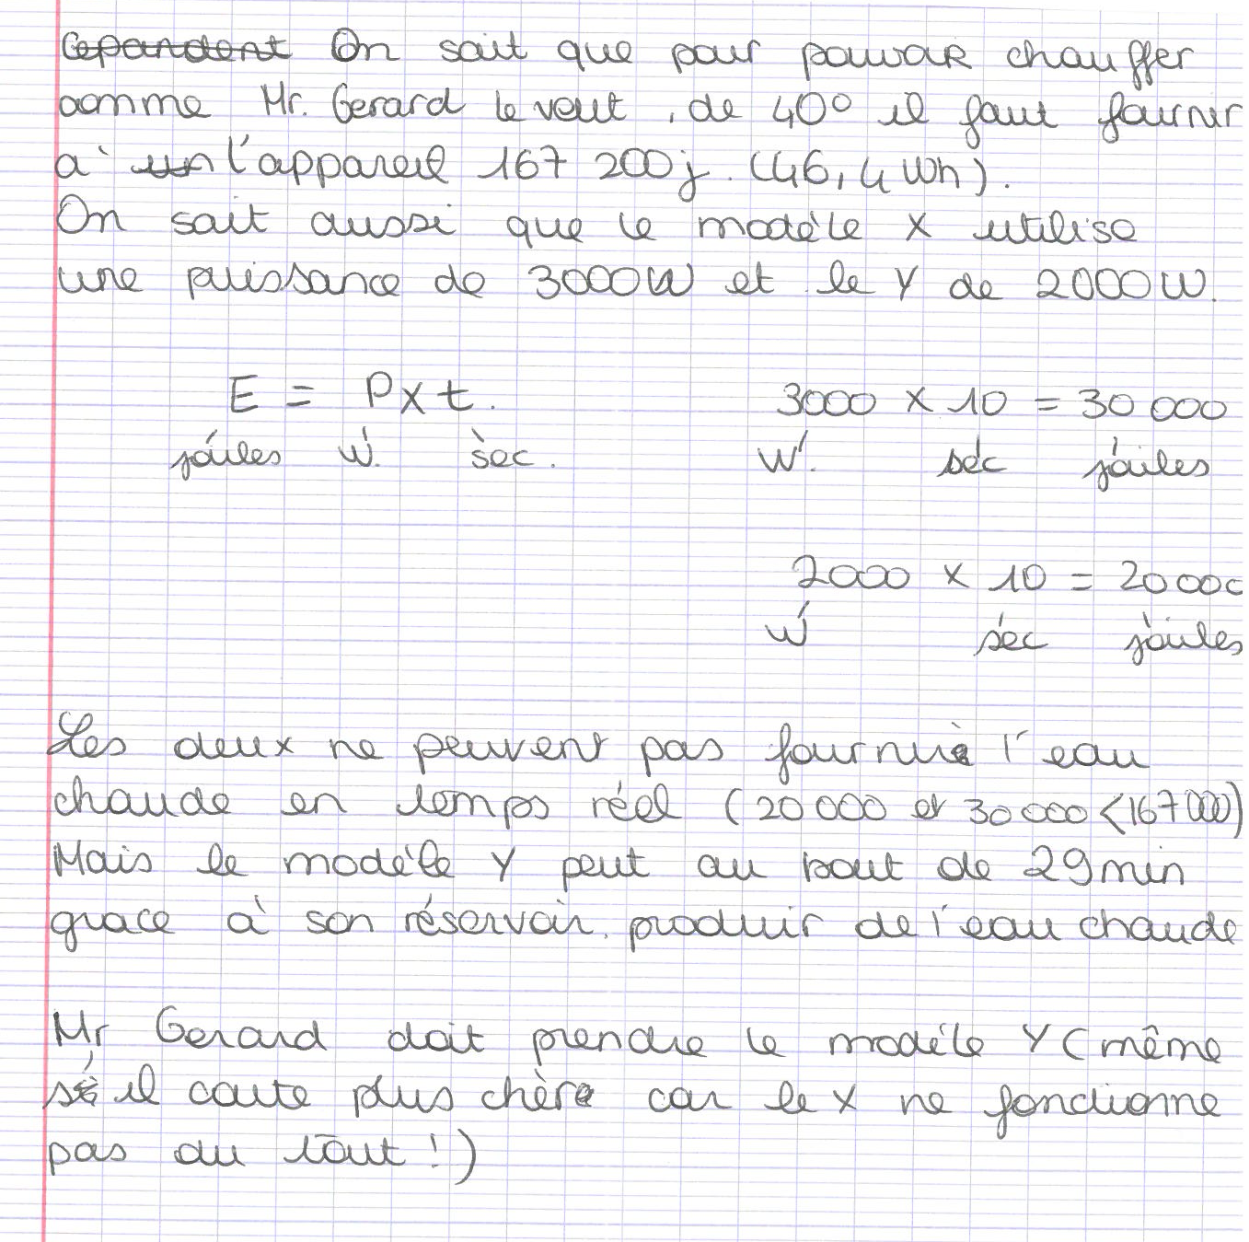 Cependent On sait que pour pouvoir chauffer
comme Mr. Gerard le veut, de 40° il faut fournir
à un l'appareil 167 200j. (46,4 Wh).
On sait aussi que le modèle X utilise
une puissance de 3000W et le Y de 2000W.
E = P x t.
joules W. sec.
3000 x 10 = 30 000
W. sec joules
2000 x 10 = 20000
W sec joules
Les deux ne peuvent pas fournir l'eau
chaude en temps réel (20 000 et 30 000 < 167 000)
Mais le modèle Y peut au bout de 29min
grace à son réservoir. produir de l'eau chaude
Mr Gerard doit prendre le modèle Y (même
s'il coute plus chère car le X ne fonctionne
pas du tout !)